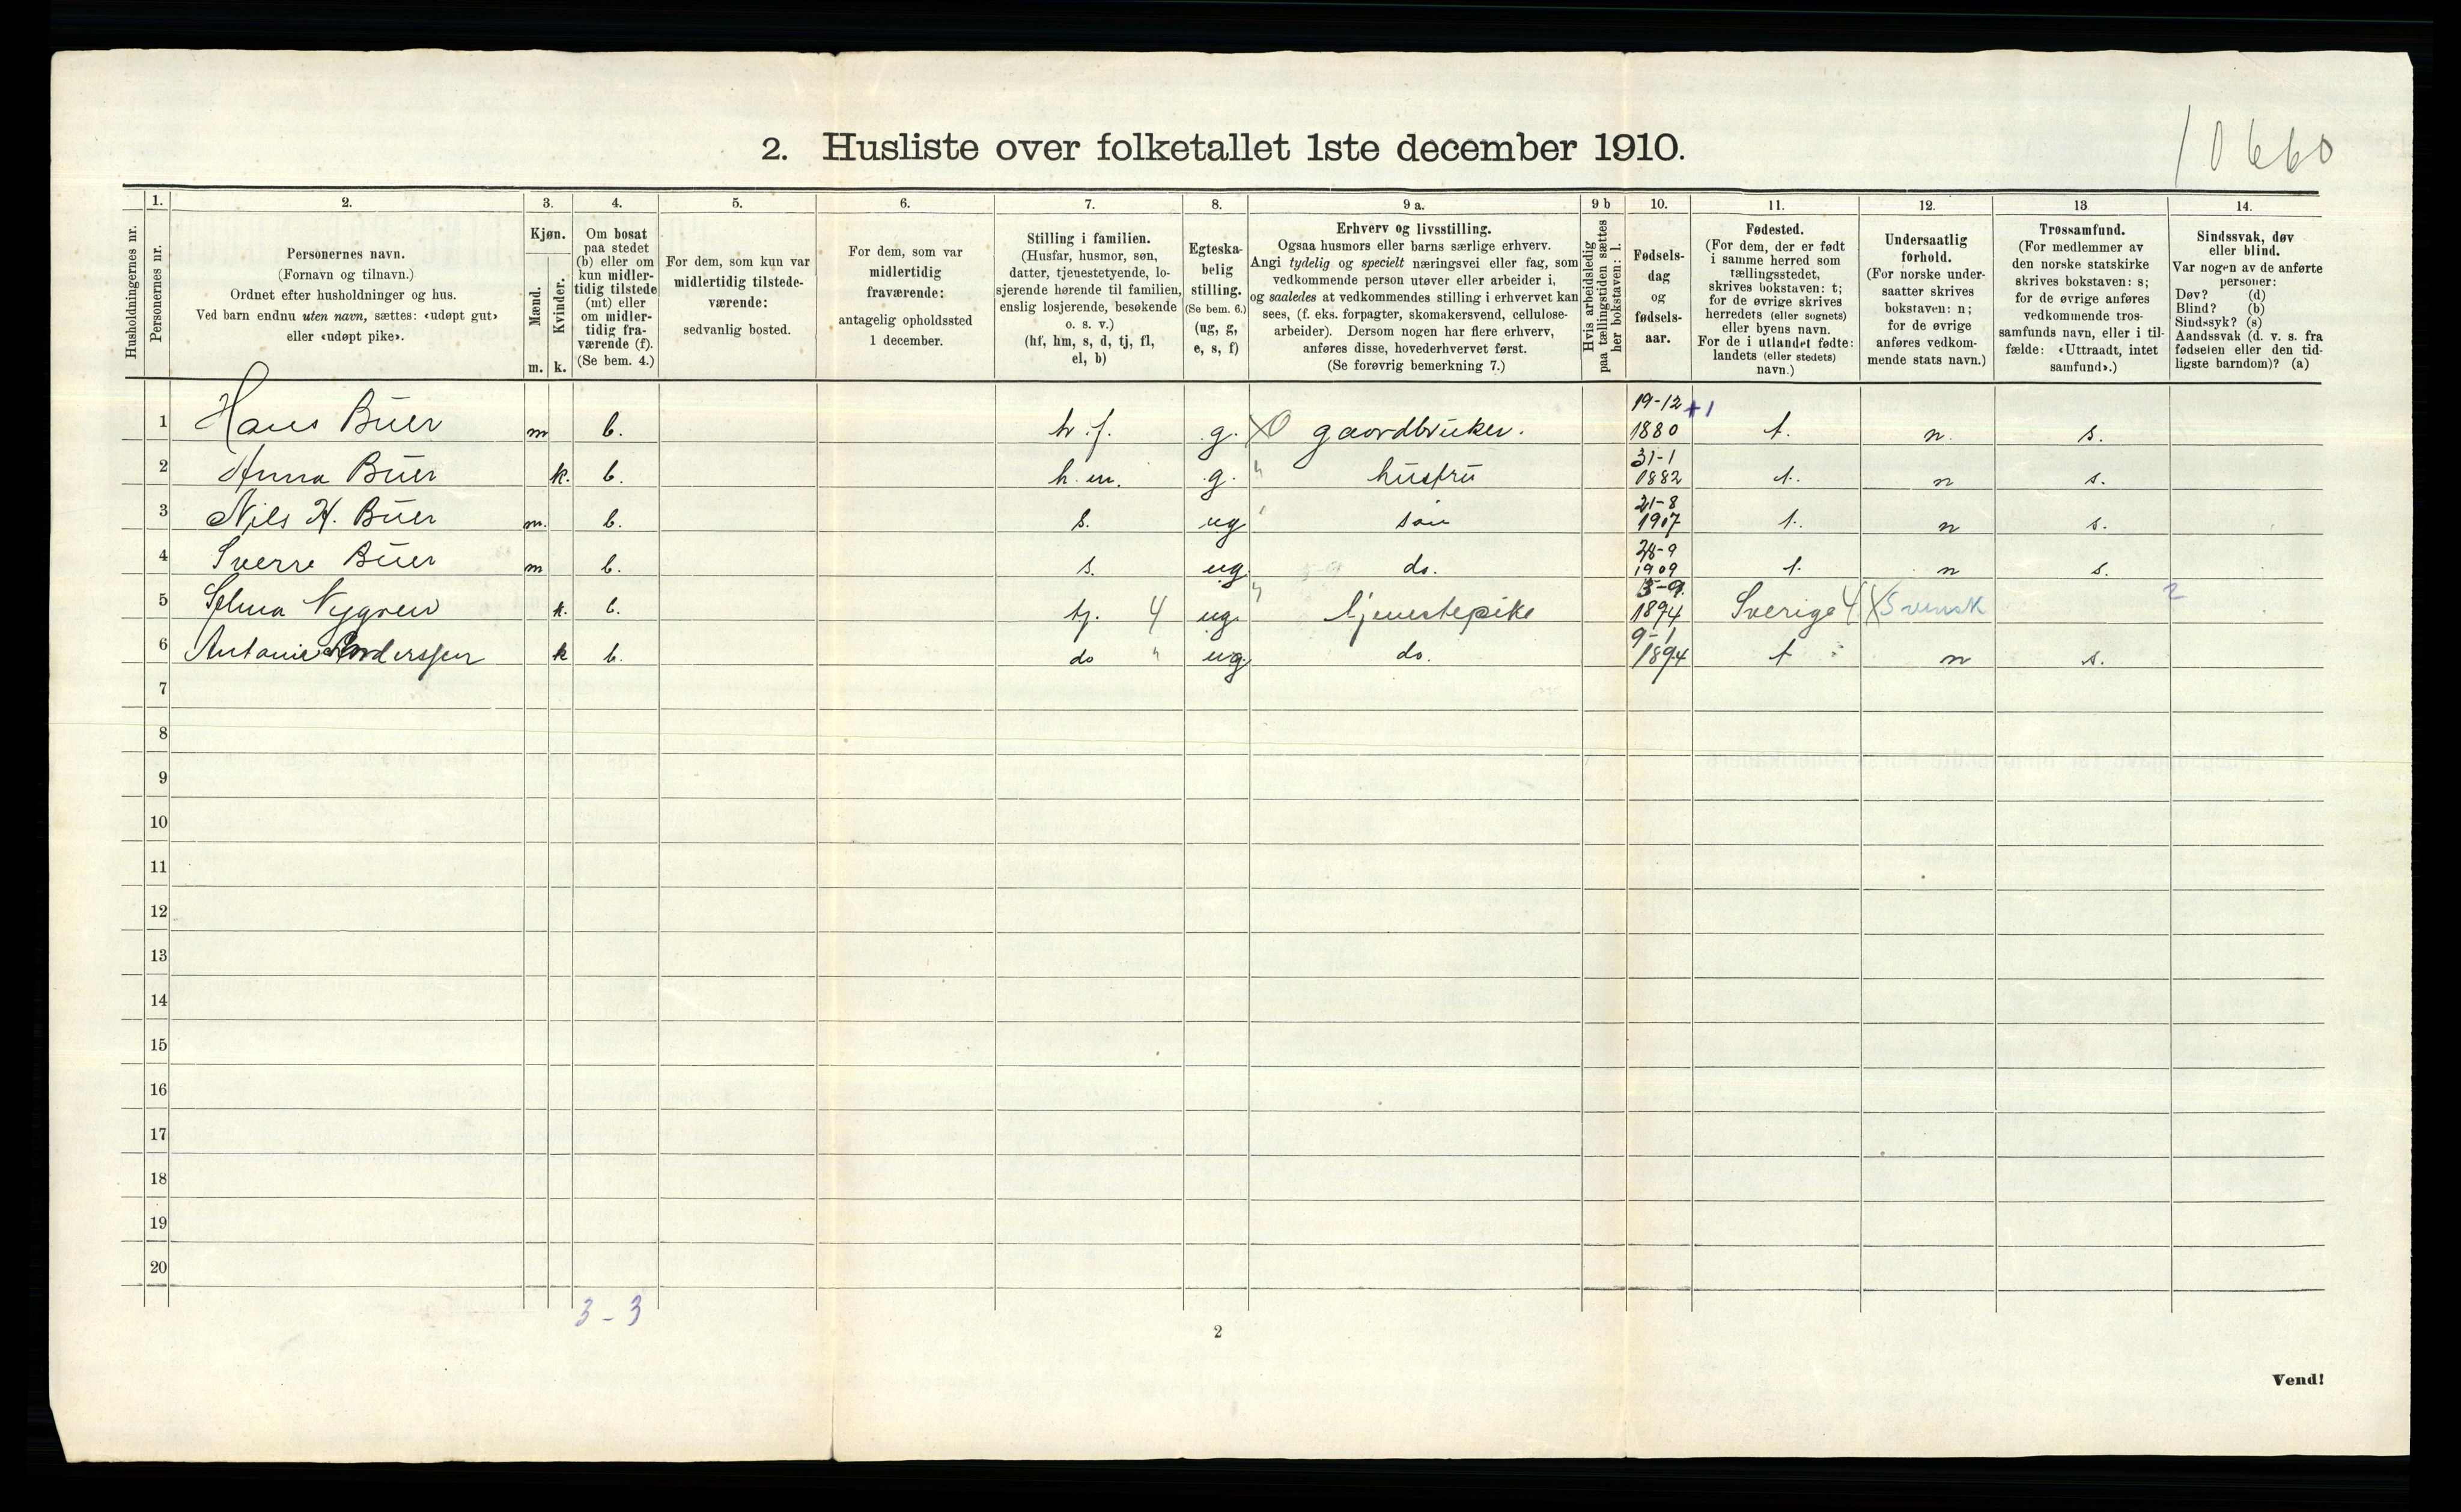 10660
2. Husliste over folketallet 1ste december 1910.
1. 2. 3. 4. 5. 6. 7. 8. 9 a. 9 b 10. 11. 12. 13 14.
Husholdningernes nr.
Personernes nr.
Personernes navn.
(Fornavn og tilnavn.)
Ordnet efter husholdninger og hus.
Ved barn endnu uten navn, sættes: «udøpt gut»
eller «udøpt pike».
Kjøn.
Mænd.
Kvinder.
m. k.
Om bosat
paa stedet
(b) eller om
kun midler-
tidig tilstede
(mt) eller
om midler-
tidig fra-
værende (f).
(Se bem. 4.)
For dem, som kun var
midlertidig tilstede-
værende:
sedvanlig bosted.
For dem, som var
midlertidig
fraværende:
antagelig opholdssted
1 december.
Stilling i familien.
(Husfar, husmor, søn,
datter, tjenestetyende, lo-
sjerende hørende til familien,
enslig losjerende, besøkende
o. s. v.)
(hf, hm, s, d, tj, fl,
el, b)
Egteska-
belig
stilling.
(Se bem. 6.)
(ug, g,
e, s, f)
Erhverv og livsstilling.
Ogsaa husmors eller barns særlige erhverv.
Angi tydelig og specielt næringsvei eller fag, som
vedkommende person utøver eller arbeider i,
og saaledes at vedkommendes stilling i erhvervet kan
sees, (f. eks. forpagter, skomakersvend, cellulose-
arbeider). Dersom nogen har flere erhverv,
anføres disse, hovederhvervet først.
(Se forøvrig bemerkning 7.)
Hvis arbeidsledig
paa tællingstiden sættes
her bokstaven: l.
Fødsels-
dag
og
fødsels-
aar.
Fødested.
(For dem, der er født
i samme herred som
tællingsstedet,
skrives bokstaven: t;
for de øvrige skrives
herredets (eller sognets)
eller byens navn.
For de i utlandet fødte:
landets (eller stedets)
navn.)
Undersaatlig
forhold.
(For norske under-
saatter skrives
bokstaven: n;
for de øvrige
anføres vedkom-
mende stats navn.)
Trossamfund.
(For medlemmer av
den norske statskirke
skrives bokstaven: s;
for de øvrige anføres
vedkommende tros-
samfunds navn, eller i til-
fælde: «Uttraadt, intet
samfund».)
Sindssvak, døv
eller blind.
Var nogen av de anførte
personer:
Døv? (d)
Blind? (b)
Sindssyk? (s)
Aandssvak (d. v. s. fra
fødselen eller den tid-
ligste barndom)? (a)
1 Hans Buer m b. h.f. g. X0 gaardbruker. 19-12 1880 +1 t. n. s.
2 Anna Buer k. b. h.m. g. " hustru 31-1 1882 t. n s.
3 Nils H. Buer m. b. s. ug søn 21-8 1907 t. n s.
4 Sverre Buer m b. s. ug do. 28-9 1909 t. n s.
5 Selma Nygren k. b. tj. 4 ug. " tjenestepike 1894 Sverige 4 X Svensk 2
6 Antonie Anderssen k b. do " ug. do. 9-1 1894 t n s.
7
8
9
10
11
12
13
14
15
16
17
18
19
20
3 - 3
2
Vend!